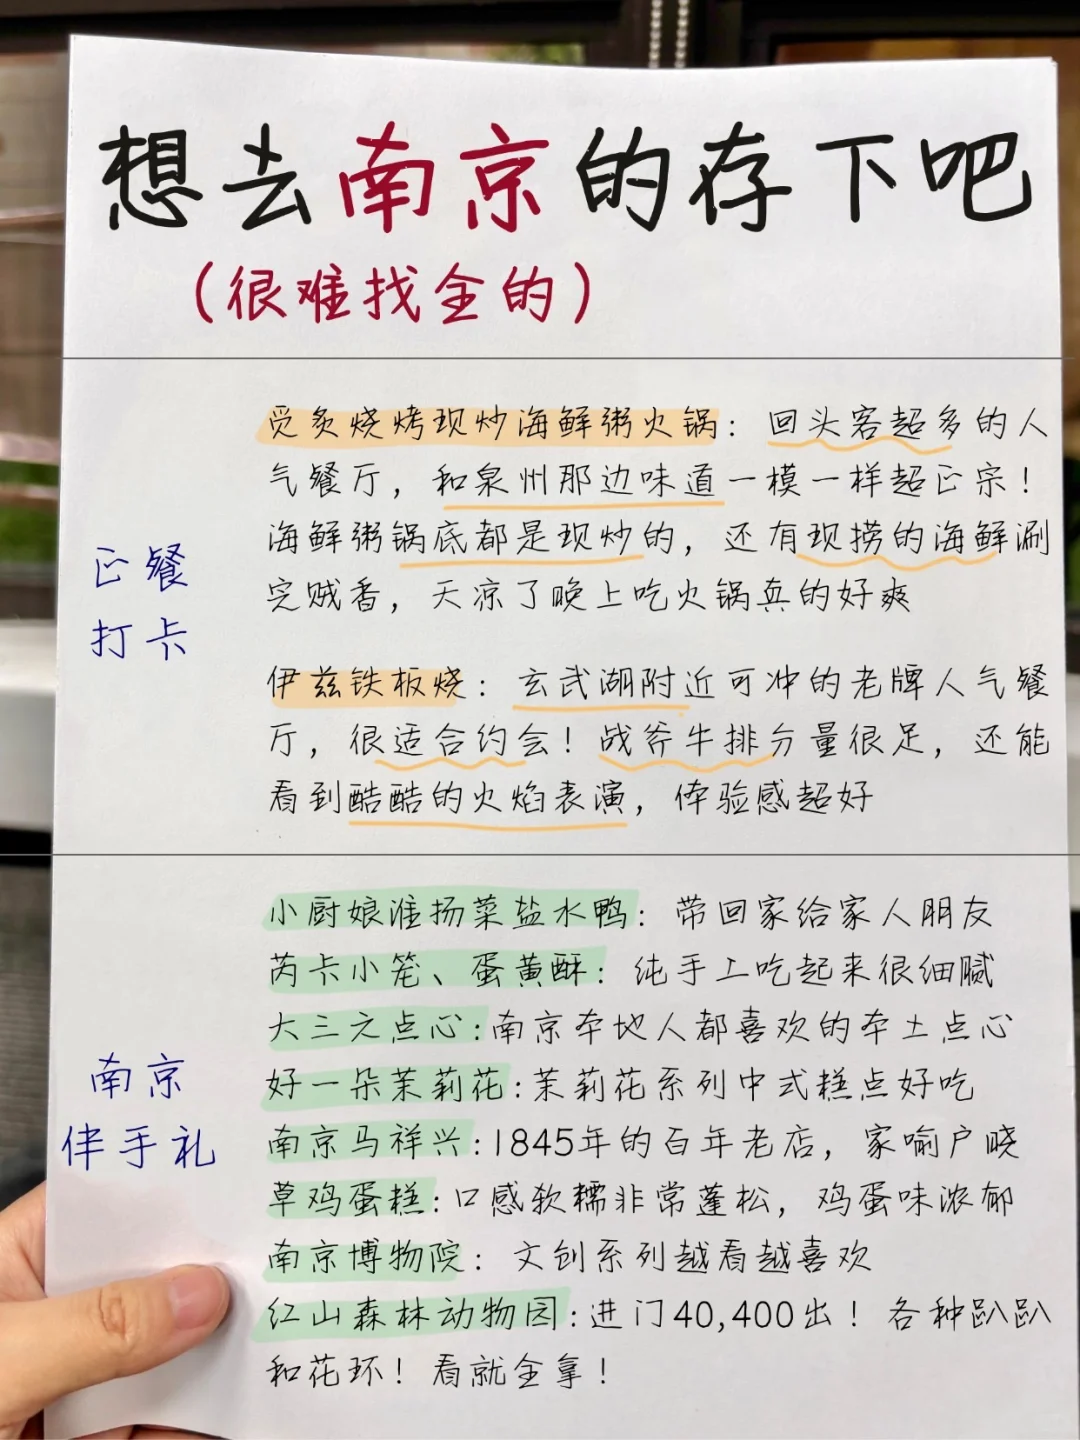 想去南京的存下吧
(很难找全的)
正餐
打卡
觅炙烧烤现炒海鲜粥火锅：回头客超多的人
气餐厅，和泉州那边味道一模一样超正宗！
海鲜粥锅底都是现炒的，还有现捞的海鲜涮
完贼香，天凉了晚上吃火锅真的好爽
伊兹铁板烧：玄武湖附近可冲的老牌人气餐
厅，很适合约会！战斧牛排分量很足，还能
看到酷酷的火焰表演，体验感超好
南京
伴手礼
小厨娘淮扬菜盐水鸭：带回家给家人朋友
芮卡小笼、蛋黄酥：纯手工吃起来很细腻
大三元点心：南京本地人都喜欢的本土点心
好一朵茉莉花：茉莉花系列中式糕点好吃
南京马祥兴：1845年的百年老店，家喻户晓
草鸡蛋糕：口感软糯非常蓬松，鸡蛋味浓郁
南京博物院：文创系列越看越喜欢
红山森林动物园：进门40,400出！各种趴趴
和花环！看就全拿！